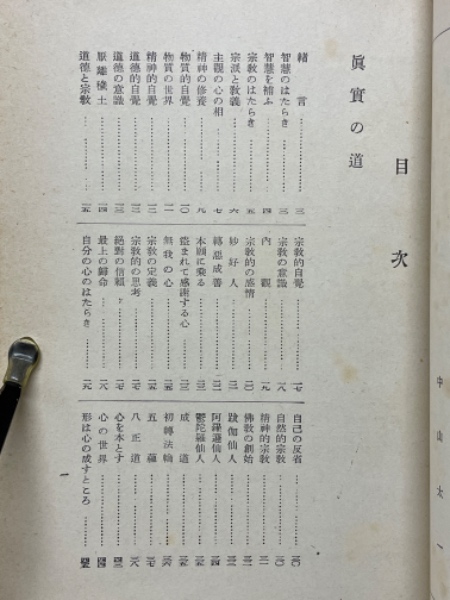 中山太一
目次
眞實の道
緒言……三
智慧のはたらき……三
智慧を補ふ……四
宗教のはたらき……五
宗派と教義……六
主觀の心の相……七
精神の修養……九
物質的自覺……一〇
物質の世界……一一
精神的自覺……一二
道德的自覺
道德の意識……一三
厭離穢土……一四
道德と宗教……一五
宗教的自覺……一七
宗教の意識……一八
內觀……一九
宗教的の感情
妙好人
轉惡成善
本願に乘る
盜まれて感謝する心
無我の心
宗教の定義
宗教的の思考
絕對の信賴
最上の歸命
自分の心のはたらき
自己の反省
自然的宗教
精神的宗教
佛教の創始
跋伽仙人
阿羅邏仙人
鬱陀羅仙人
成道
初轉法輪
五蘊
八正道
心を本とす
心の世界
形は心の成すところ
一